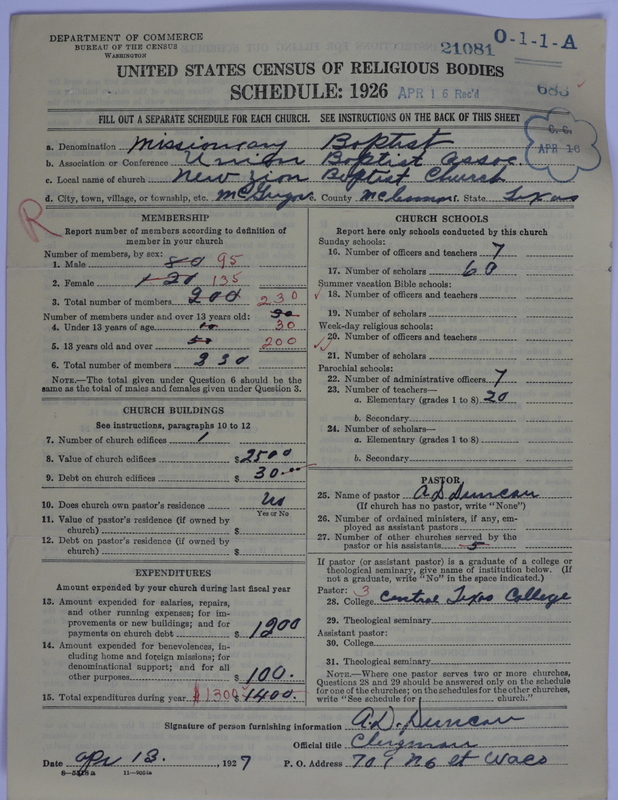 DEPARTMENT OF COMMERCE
BUREAU OF THE CENSUS
WASHINGTON
21081
O-1-1-A
UNITED STATES CENSUS OF RELIGIOUS BODIES
SCHEDULE: 1926
APR 16 Rec'd
683
FILL OUT A SEPARATE SCHEDULE FOR EACH CHURCH. SEE INSTRUCTIONS ON THE BACK OF THIS SHEET
APR 16
a. Denomination Missionary Baptist
b. Association or Conference Union Baptist Assoc.
c. Local name of church New Zion Baptist Church
d. City, town, village, or township, etc. McGregor e. County McLennan f. State Texas
R
MEMBERSHIP
Report number of members according to definition of
member in your church
Number of members, by sex:
1. Male 80 95
2. Female 120 135
3. Total number of members 200 230
Number of members under and over 13 years old:
4. Under 13 years of age 30
5. 13 years old and over 200
6. Total number of members 230
NOTE.—The total given under Question 6 should be the
same as the total of males and females given under Question 3.
CHURCH BUILDINGS
See instructions, paragraphs 10 to 12
7. Number of church edifices 1
8. Value of church edifices $2500
9. Debt on church edifices $30.00
10. Does church own pastor's residence
Yes or No
11. Value of pastor's residence (if owned by
church) $
12. Debt on pastor's residence (if owned by
church) $
EXPENDITURES
Amount expended by your church during last fiscal year
13. Amount expended for salaries, repairs,
and other running expenses; for im-
provements or new buildings; and for
payments on church debt $1200
14. Amount expended for benevolences, in-
cluding home and foreign missions; for
denominational support; and for all
other purposes $100.
15. Total expenditures during year $1300 1400.
CHURCH SCHOOLS
Report here only schools conducted by this church
Sunday schools:
16. Number of officers and teachers 7
17. Number of scholars 60
Summer vacation Bible schools:
18. Number of officers and teachers
19. Number of scholars
Week-day religious schools:
20. Number of officers and teachers
21. Number of scholars
Parochial schools:
22. Number of administrative officers 7
23. Number of teachers—
a. Elementary (grades 1 to 8) 20
b. Secondary
24. Number of scholars—
a. Elementary (grades 1 to 8)
b. Secondary
PASTOR
25. Name of pastor A. D. Duncan
(If church has no pastor, write "None")
26. Number of ordained ministers, if any, em-
ployed as assistant pastors
27. Number of other churches served by the
pastor or his assistants 5
If pastor (or assistant pastor) is a graduate of a college or
theological seminary, give name of institution below. (If
not a graduate, write "No" in the space indicated.)
Pastor: 3
28. College Central Texas College
29. Theological seminary
Assistant pastor:
30. College
31. Theological seminary
NOTE.—Where one pastor serves two or more churches,
Questions 28 and 29 should be answered only on the schedule
for one of the churches; on the schedules for the other churches,
write "See schedule for [ church."
Signature of person furnishing information A. D. Duncan
Official title Clergman
Date Apr 13, 1927 P. O. Address 709 N 6 st Waco
11—9054a